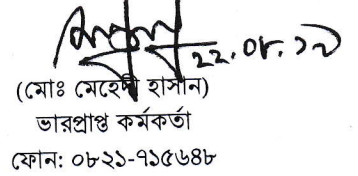 ২২.০৮.১৯
(মোঃ মেহেদী হাসান)
ভারপ্রাপ্ত কর্মকর্তা
ফোন: ০৮২১-৭১৫৬৪৮